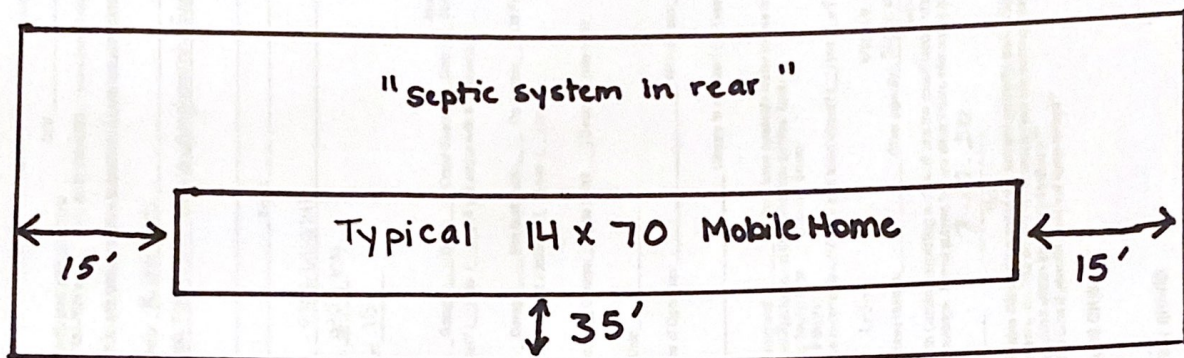 "septic system in rear"
Typical 14 x 70 Mobile Home
15'
15'
35'